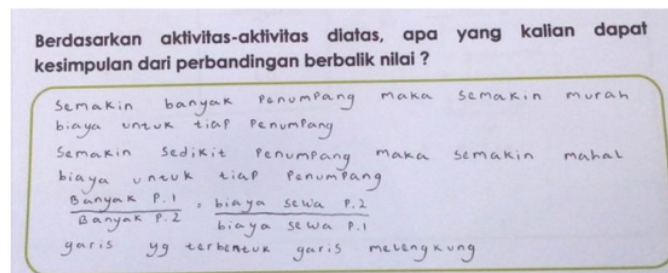 Berdasarkan aktivitas-aktivitas diatas, apa yang kalian dapat
kesimpulan dari perbandingan berbalik nilai ?
Semakin banyak Penumpang maka semakin murah
biaya untuk tiap Penumpang
Semakin sedikit Penumpang maka semakin mahal
biaya untuk tiap Penumpang
Banyak P.1 = biaya sewa P.2
Banyak P.2 biaya sewa P.1
garis yg terbentuk garis melengkung